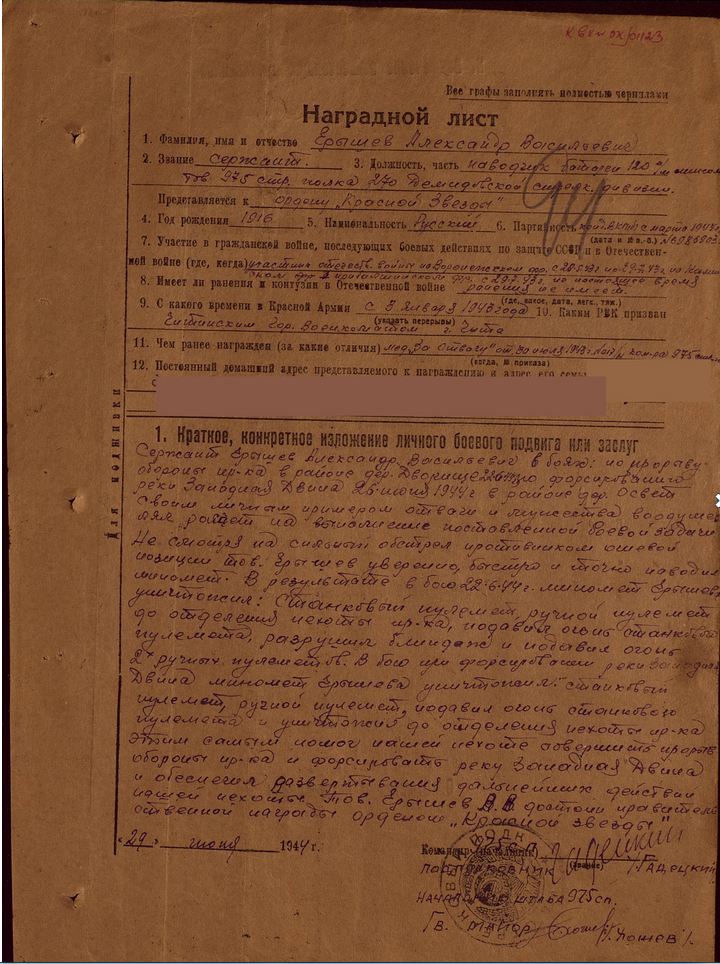 Все графы заполнять полностью чернилами
Наградной лист
1. Фамилия, имя и отчество Ерышев Александр Васильевич
2. Звание сержант. 3. Должность, часть наводчик батареи 120 м/м мином
тов 975 стр. полка 270 Демидовской стрелк. дивизии.
Представляется к ордену "Красной Звезды"
4. Год рождения 1916 5. Национальность Русский 6. Партийность канд. ВКП(б) с марта 1944г.
7. Участие в гражданской войне, последующих боевых действиях по защите СССР и в Отечествен-
(дата и № п.-б.)
ной войне (где, когда) участник отечеств. войны на Воронежском фр.
по настоящее время
8. Имеет ли ранения и контузии в Отечественной войне ранения не имеет.
(где, какое, дата, легк., тяж.)
9. С какого времени в Красной Армии с 3 Января 1943 года 10. Каким РВК призван
(указать перерывы)
Читинским гор. Военкоматом г. Чита
11. Чем ранее награжден (за какие отличия) мед. "За Отвагу" от 30 июля 1943г.
(когда, № приказа)
12. Постоянный домашний адрес представляемого к награждению и адрес его семьи
Для подшивки
1. Краткое, конкретное изложение личного боевого подвига или заслуг
Сержант Ерышев Александр. Васильевич в боях: по прорыву
обороны пр-ка в районе дер. Дворище и по форсированию
реки Западная Двина 26 июня 1944 г в районе дер. Освет
своим личным примером отваги и мужества воодушев
лял расчет на выполнение поставленной боевой задачи
Не смотря на сильный обстрел противником огневой
позиции тов. Ерышев уверенно, быстро и точно наводил
миномет. В результате в бою 22.6.44г. миномет Ерышева
уничтожил: Станковый пулемет, ручной пулемет
до отделения пехоты пр-ка, подавил огонь станковою
пулемета, разрушил блиндаж и подавил огонь
2х ручных пулеметов. В бою при форсировании реки Западная
Двина миномет Ерышева уничтожил: станковый
пулемет, ручной пулемет, подавил огонь станковою
пулемета и уничтожил до отделения пехоты пр-ка
Этим самым помог нашей пехоте совершить прорыв
обороны пр-ка и форсировать реку Западная Двина
и обеспечил развертывания дальнейших действий
нашей пехоты. Тов. Ерышев А В достоин правитель
ственной награды орденом "Красной звезды"
"29" июня 1944 г.
Командир (начальник)
(звание)
Подполковник /Гадецкий/
Начальник штаба 975 сп.
Гв. майор